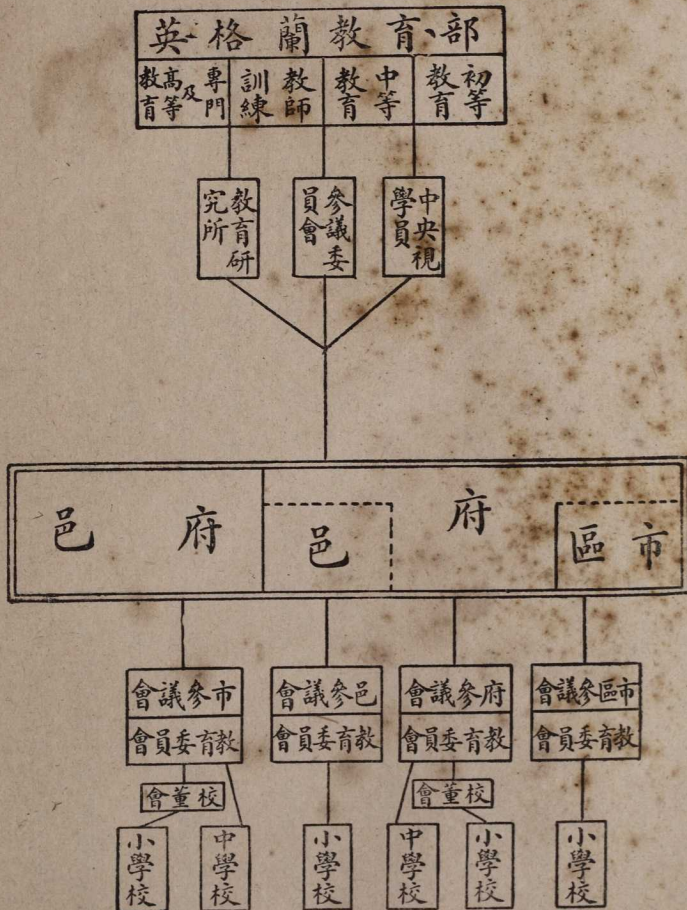 英格蘭教育部
初等教育
中等教育
教師訓練
專門及高等教育
中央視學員
參議委員會
教育研究所
市區
府
邑
府邑
市區參議會
教育委員會
府參議會
教育委員會
邑參議會
教育委員會
市參議會
教育委員會
校董會
校董會
小學校
小學校
中學校
小學校
中學校
小學校